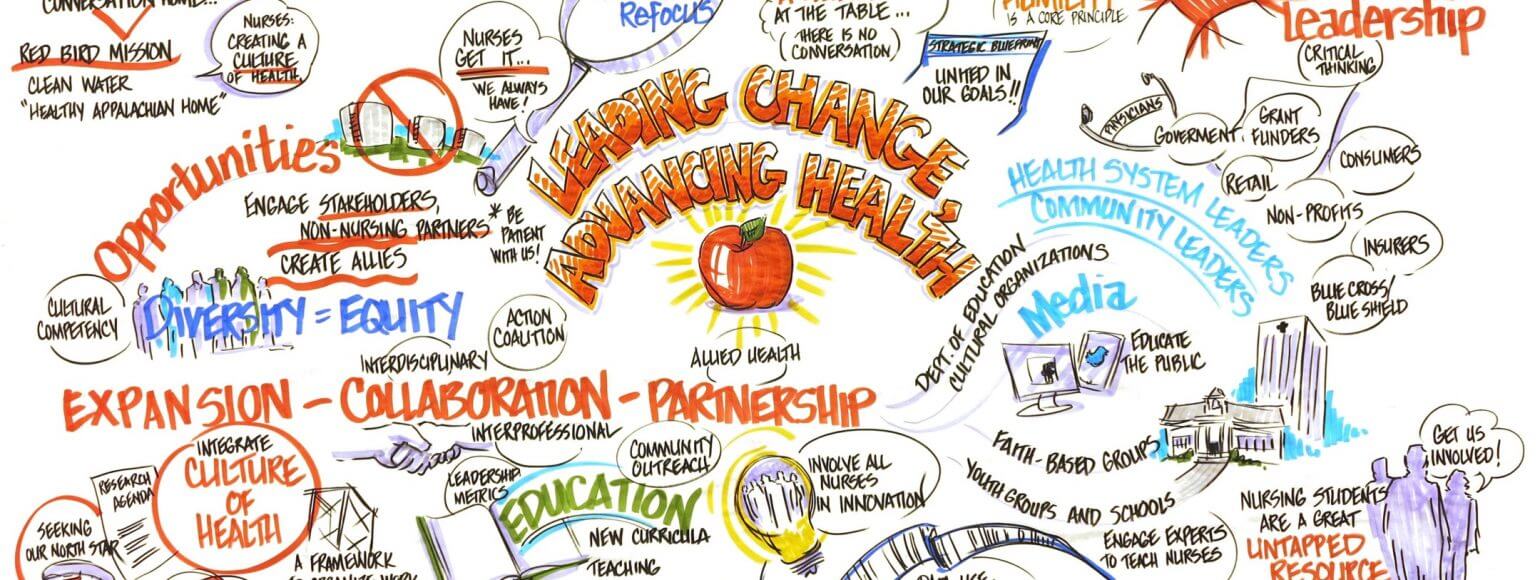 CONVERSATION HOME...
RED BIRD MISSION
CLEAN WATER
"HEALTHY APPALACHIAN HOME"
NURSES:
CREATING A
CULTURE
OF HEALTH.
NURSES
GET IT...
WE ALWAYS
HAVE!
REFOCUS
AT THE TABLE...
THERE IS NO
CONVERSATION
IS A CORE PRINCIPLE
STRATEGIC BLUEPRINT
UNITED IN
OUR GOALS!!
Leadership
CRITICAL
THINKING
PHYSICIANS
GOVERMENT
GRANT
FUNDERS
CONSUMERS
RETAIL
NON-PROFITS
INSURERS
BLUE CROSS/
BLUE SHIELD
HEALTH SYSTEM LEADERS
COMMUNITY LEADERS
LEADING CHANGE,
ADVANCING HEALTH
Opportunities
ENGAGE STAKEHOLDERS,
NON-NURSING PARTNERS
CREATE ALLIES
* BE
PATIENT
WITH US!
CULTURAL
COMPETENCY
DIVERSITY = EQUITY
ACTION
COALITION
INTERDISCIPLINARY
ALLIED HEALTH
EXPANSION - COLLABORATION - PARTNERSHIP
INTERPROFESSIONAL
DEPT. OF EDUCATION
CULTURAL ORGANIZATIONS
Media
EDUCATE
THE PUBLIC
FAITH-BASED GROUPS
YOUTH GROUPS AND SCHOOLS
ENGAGE EXPERTS
TO TEACH NURSES
GET US
INVOLVED!
NURSING STUDENTS
ARE A GREAT
UNTAPPED
RESOURCE
RESEARCH
AGENDA
SEEKING
OUR NORTH STAR
INTEGRATE
CULTURE
OF
HEALTH
A FRAMEWORK
TO ORGANIZE WORK
LEADERSHIP
METRICS
EDUCATION
COMMUNITY
OUTREACH
NEW CURRICULA
TEACHING
INVOLVE ALL
NURSES
IN INNOVATION